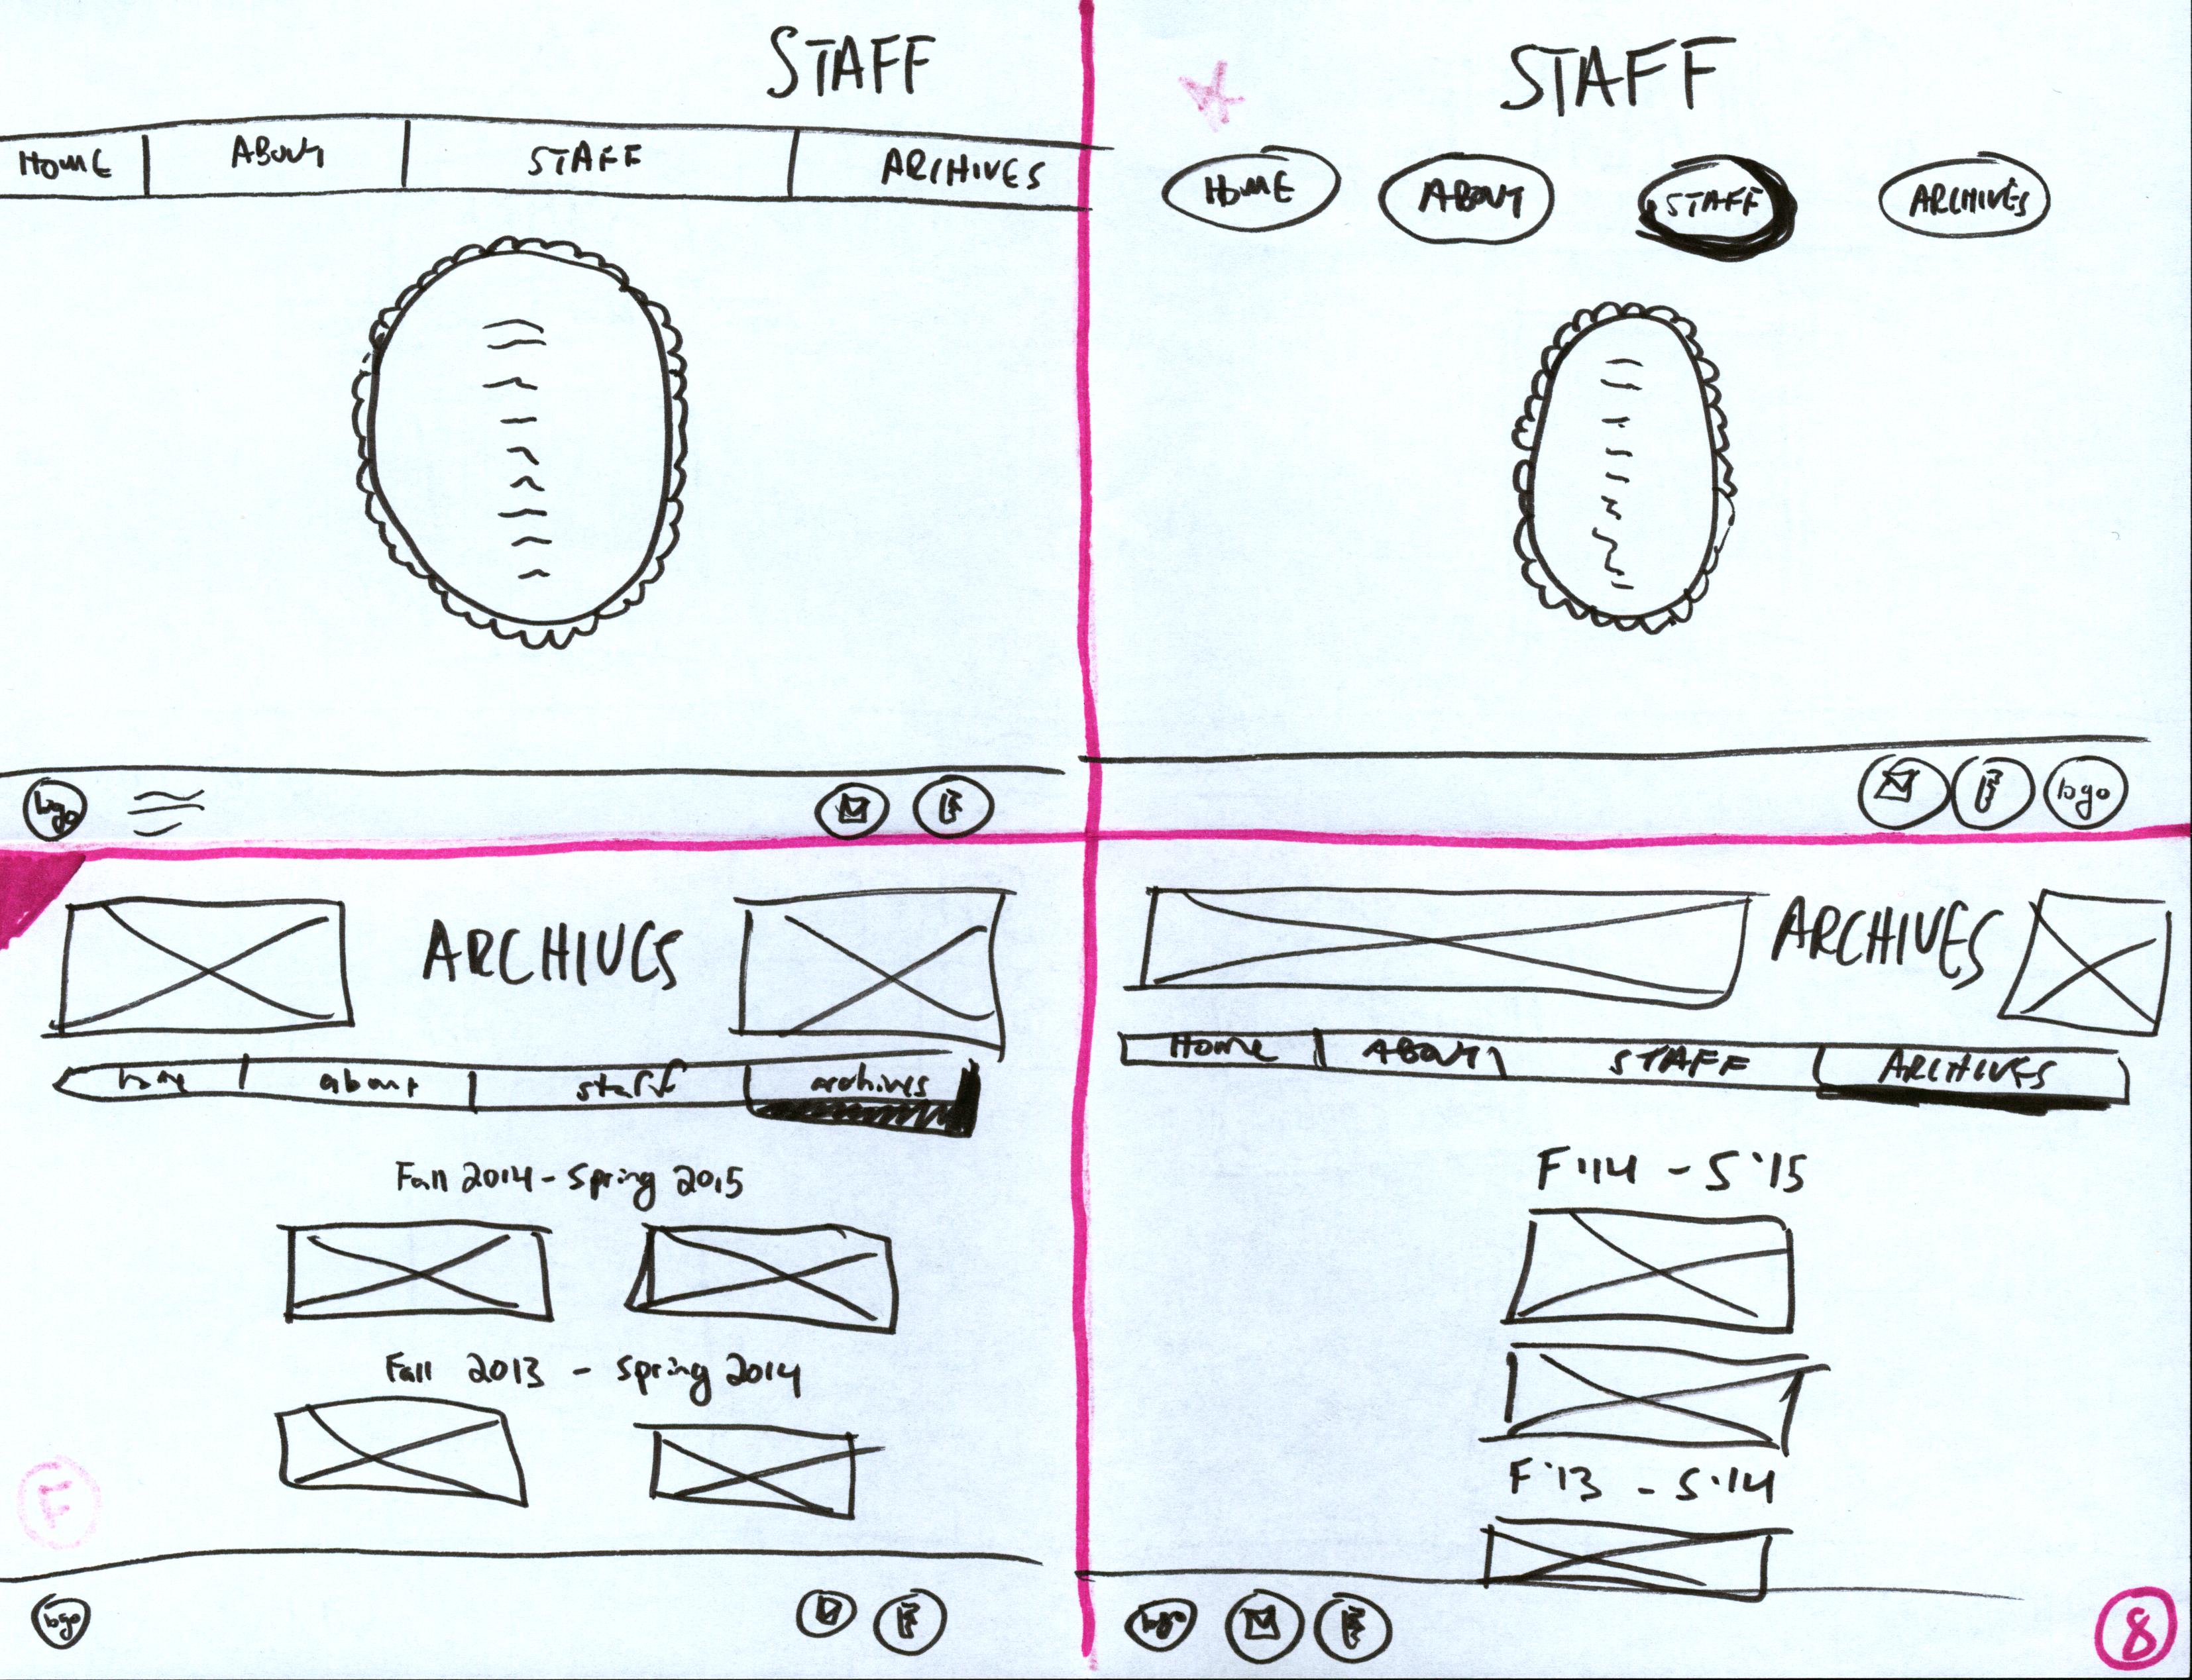 STAFF
HOME ABOUT STAFF ARCHIVES
logo
STAFF
HOME ABOUT STAFF ARCHIVES
logo
ARCHIVES
home about staff archives
Fall 2014 - Spring 2015
Fall 2013 - Spring 2014
F
logo
ARCHIVES
Home ABOUT STAFF ARCHIVES
F '14 - S '15
F '13 - S '14
logo
8